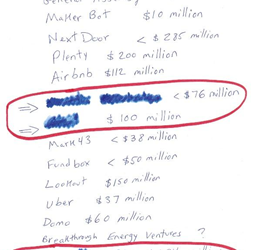 Maker Bot $10 million
Next Door < $285 million
Plenty $200 million
Airbnb $112 million
⇒ < $76 million
⇒ $100 million
Mark43 < $38 million
Fundbox < $50 million
Lookout $150 million
Uber $37 million
Domo $60 million
Breakthrough Energy Ventures ?